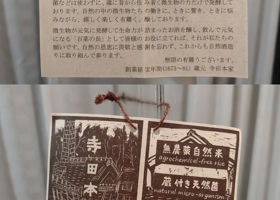 菌などは使わずに、蔵に昔から住み着く微生物の力だけで発酵して
おります。自然の中の微生物たちの働きに、ときに驚き、ときに悩
みながら、嬉しく楽しく有難く、醸しております。
微生物が元気に発酵して生命力が詰まったお酒を醸し、飲んで元気
になる「百薬の長」として皆様のお役に立てれば、それが私たちの
願いです。自然の恩恵に畏敬と感謝を忘れず、これからも自然酒造
りに取り組んで参ります。
無限の有難うございます。
創業延宝年間(1673~81) 蔵元 寺田本家
寺田本
無農薬自然米
agrochemical-free rice
蔵付き天然菌
natural micro-organism